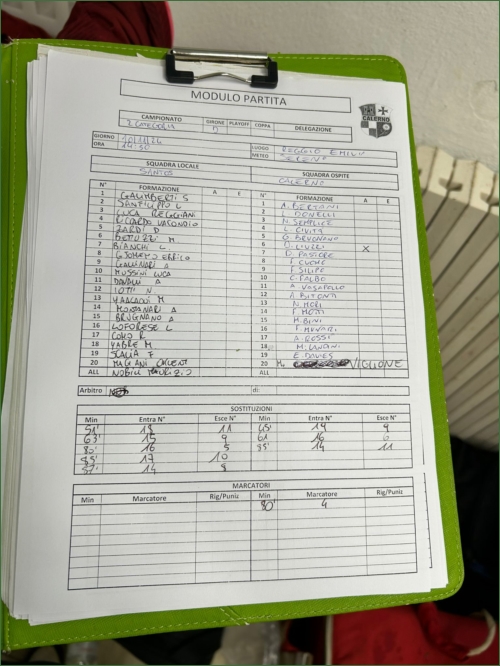 MODULO PARTITA
CALERNO
CAMPIONATO GIRONE PLAYOFF COPPA DELEGAZIONE
D
GIORNO
ORA 14:30
LUOGO REGGIO EMILIA
METEO SERENO
SQUADRA LOCALE SQUADRA OSPITE
SANTOS CALERNO
N° FORMAZIONE A E FORMAZIONE A E
1 GALIMBERTI S 1 A. BERTONI
2 SANFILIPPO L 2
3 LUCA REGGIANI 3 N. SEMPLICE
4 RICCARDO 4 L. CIVITA
5 ZARDI D 5 G. BRUGNANO
6 M 6 D. LIUZZI X
7 BIANCHI L 7 D. PASTORE
8 ENRICO 8 F. CUCHE
9 GALLINARI A 9 F. SILIPO
10 MUSSINI LUCA 10 C. FALBO
11 A 11 A. VASAPOLLO
12 IOTTI N 12 A. BITONTI
13 M 13 N. MORI
14 MONTANARI A 14 F. MOTTI
15 BRUGNANO A 15 M. BINI
16 LOFORESE L 16 F. MUNARI
17 R 17 A. ROSSI
18 YABRE M 18 M. LANCINI
19 SCALIA F 19 E. DAVIES
20 MAGLIANI 20 M. VIGLIONE
ALL NOBILI MAURIZIO ALL
Arbitro di:
SOSTITUZIONI
Min Entra N° Esce N° Min Entra N° Esce N°
51' 18 11 45' 19 9
63' 15 9 61 16 6
80' 16 5 85' 14 11
85' 17 10
87' 14 8
MARCATORI
Min Marcatore Rig/Puniz Min Marcatore Rig/Puniz
80' 4